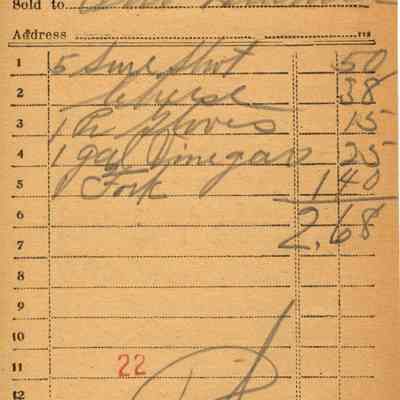 Sold to
Address
1 5 Sure Shot 50
2 Cheese 38
3 1 Pr Gloves 15
4 1 gal Vinegar 25
5 1 Fork 1 40
6 2.68
7
8
9
10
11 22
12